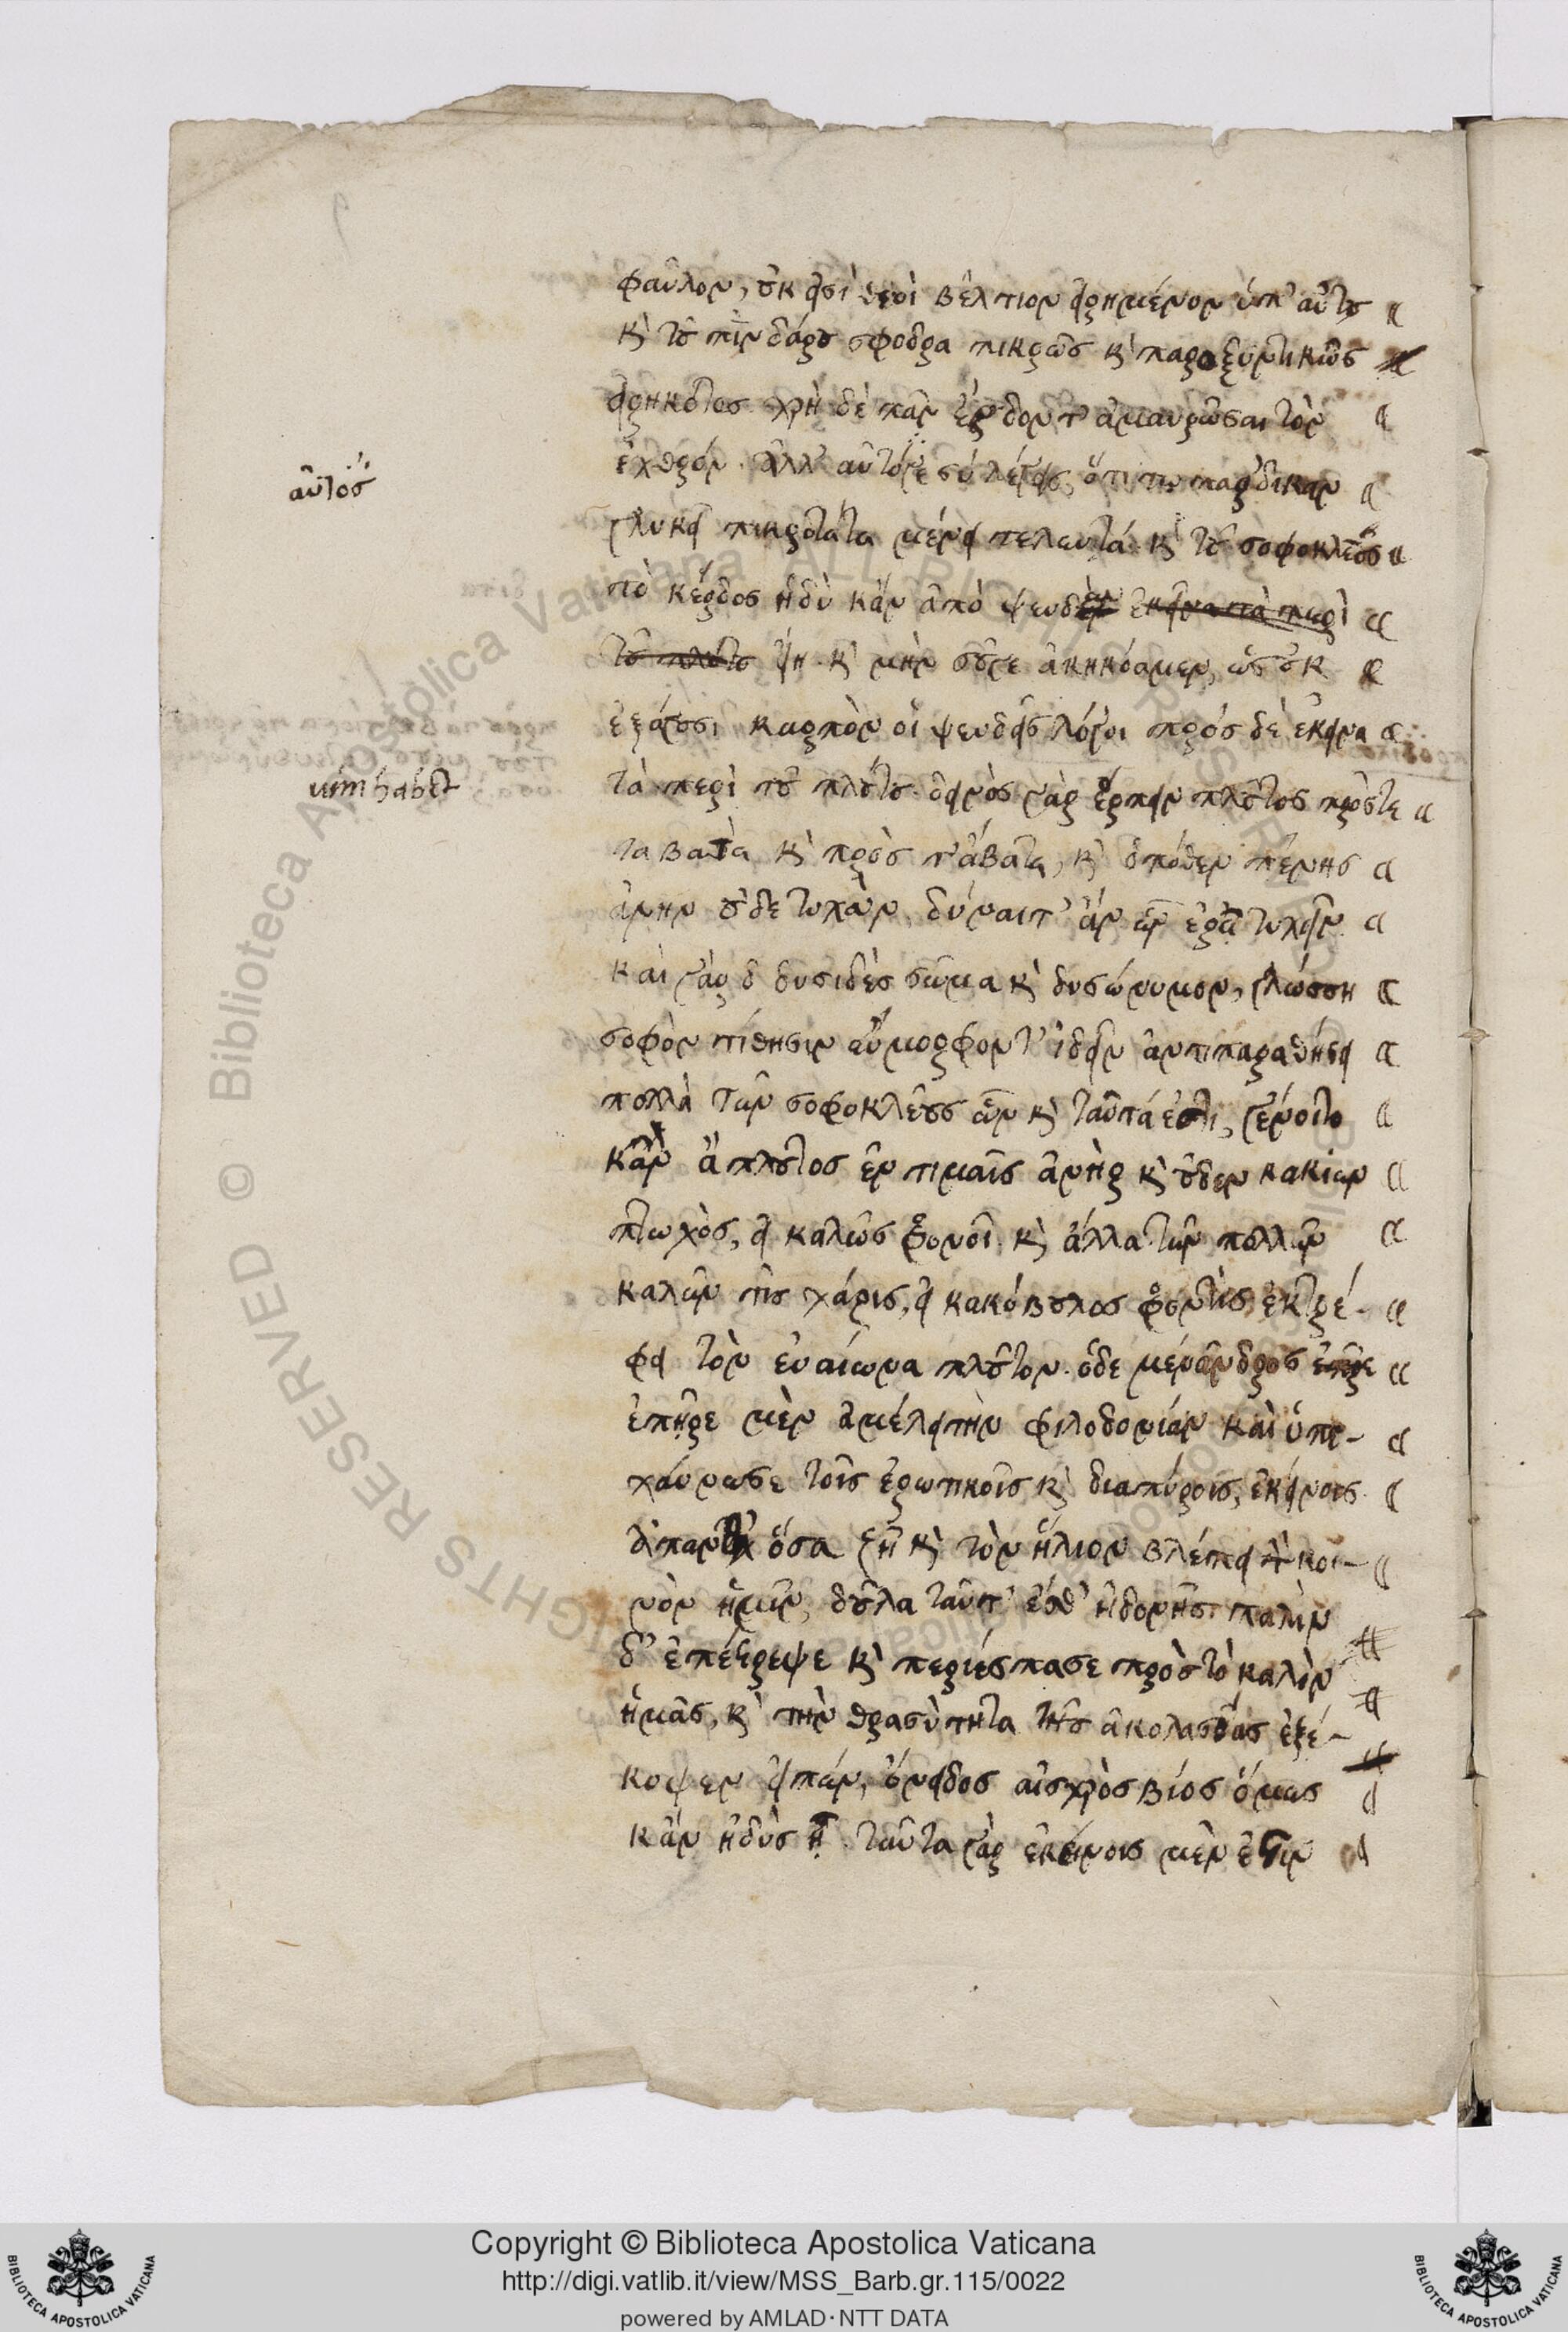 φαῦλον, οὐκ εἰσὶ θεοὶ βέλτιον εἰρημένον ὑπ' αὐτοῦ
κὶ τοῦ πινδάρου σφοδρα πικρῶς κὶ παροξυντικῶς
εἰρηκότος χρὴ δὲ πᾶν ἔρδοντ' ἀμαυρῶσαι τὸν
ἐχθρόν. ἀλλ' αὐτός γε σὺ λέγεις, ὅτι τω παρδίκαν
γλυκεῖ πικροτάτα μένει τελευτά. κὶ τοῦ σοφοκλέους
τὸ κέρδος ἡδὺ κἂν ἀπὸ ψευδῶν ἐκεῖνα τὰ περὶ
τοῦ πλούτου ἴῃ. κὶ μὴν σοῦγε ἀκηκόαμεν, ὡς οὐκ
ἐξάγουσι καρπὸν οἱ ψευδεῖς λόγοι πρὸς δὲ ἐκεῖνα
τὰ περὶ τοῦ πλούτου. δεινὸς γὰρ ἕρπειν πλοῦτος πρόστε
τα βατὰ κὶ πρὸς τ' ἄβατα, κὶ ὁπόθεν πένης
ἀνὴρ οὐδὲ τυχὼν δύναιτ' ἂν ὧν ἐρᾷ τυχεῖν
καὶ γὰρ δ δυσιδὲς σῶμα κὶ δυσώνυμον, γλώσσῃ
σοφὸν τίθησιν εὔμορφον τ' ἰδεῖν ἀντιπαραθήσει
πολλὰ τῶν σοφοκλέους ὧν κὶ ταῦτά ἐστι, γένοιτο
κἂν ἄπλουτος ἐν τιμαῖς ἀνὴρ κὶ οὐδεν κακίων
πτωχὸς, εἰ καλῶς φρονεῖ. κὶ ἀλλα τῶν πολλῶν
καλῶν τίς χάρις, εἰ κακόβουλος φροντὶς ἐκτρέ-
φει τὸν εὐαίωνα πλοῦτον. ὁδε μένανδρος ἐπῆρε
ἐπῆρε μὲν ἀμέλει τὴν φιλοδονίαν καὶ ὑπε-
χαύνωσε τοῖς ἐρωτικοῖς κὶ διαπύροις, ἐκείνοις
ἅπανθ' ὅσα ζῇ κὶ τὸν ἥλιον βλέπει τὸν κοι-
νὸν ἡμῖν, δοῦλα ταῦτ' ἔσθ' ἡδονῆς. πάλιν
δ' ἐπέστρεψε κὶ περιέσπασε πρὸς τὸ καλὸν
ἡμᾶς, κὶ τὴν θρασύτητα τῆς ἀκολασίας ἐξέ-
κοψεν εἰπών, ὄνειδος αἰσχρὸς βίος ὅμως
κἂν ἡδὺς ᾖ. ταῦτα γὰρ ἐκείνοις μέν ἐστιν
αὐτός
vim habet
Copyright © Biblioteca Apostolica Vaticana
http://digi.vatlib.it/view/MSS_Barb.gr.115/0022
powered by AMLAD · NTT DATA